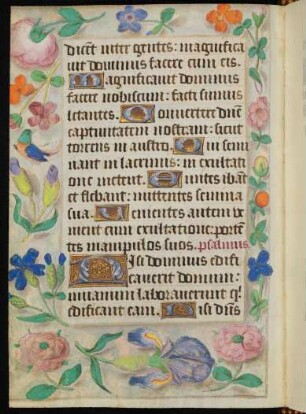 dicent inter gentes: magnifica
vit dominus facere cum eis.
Magnificavit dominus
facere nobiscum: facti sumus
letantes. Convertere dne
captivitatem nostram: sicut
torrens in austro. Qui semi
nant in lacrimis: in exultati
one metent. Euntes ibant
et flebant: mittentes semina
sua. Venientes autem ve
nient cum exultatione: porten
tes manipulos suos. psalmus.
Nisi dominus edifi
caverit domum:
invanum laboraverunt q
edificant eam. Nisi dns